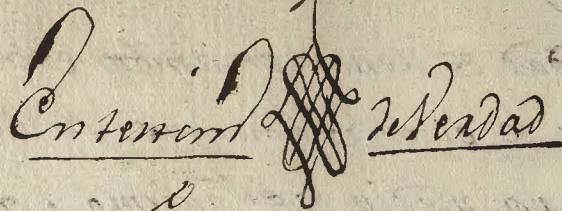 En testimo de Verdad